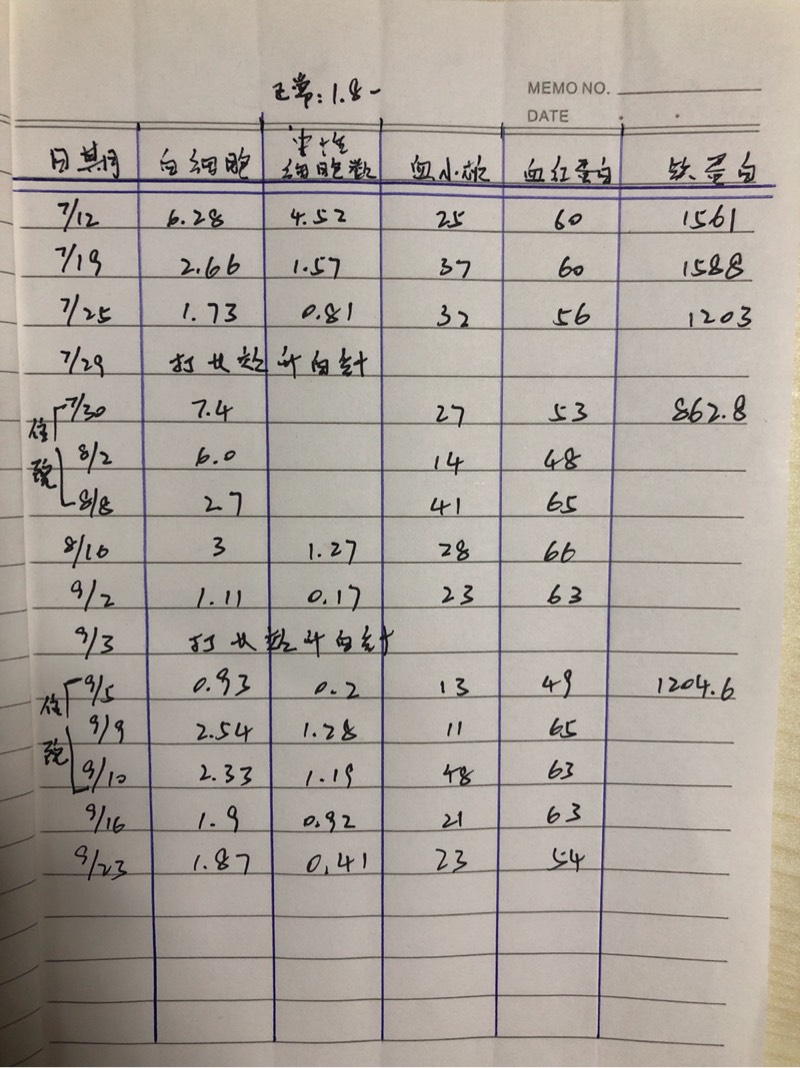 正常:1.8-
MEMO NO.
DATE
日期 白细胞 中性细胞数 血小板 血红蛋白 铁蛋白
7/12 6.28 4.52 25 60 1561
7/19 2.66 1.57 37 60 1588
7/25 1.73 0.81 32 56 1203
7/29 打长效升白针
住院
7/30 7.4 27 53 862.8
8/2 6.0 14 48
8/8 2.7 41 65
8/16 3 1.27 28 66
9/2 1.11 0.17 23 63
9/3 打长效升白针
住院
9/5 0.93 0.2 13 49 1204.6
9/9 2.54 1.28 11 65
9/10 2.33 1.19 48 63
9/16 1.9 0.92 21 63
9/23 1.87 0.41 23 54